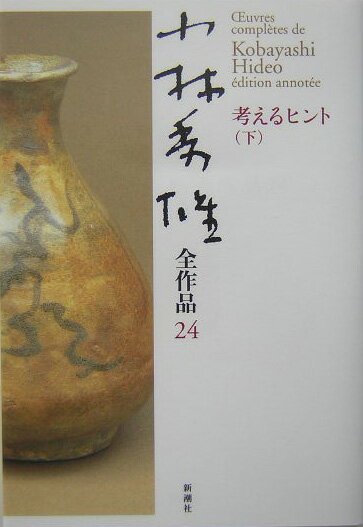 Œuvres
complètes de
Kobayashi
Hideo
édition annotée
考えるヒント
(下)
小林秀雄
全作品24
新潮社